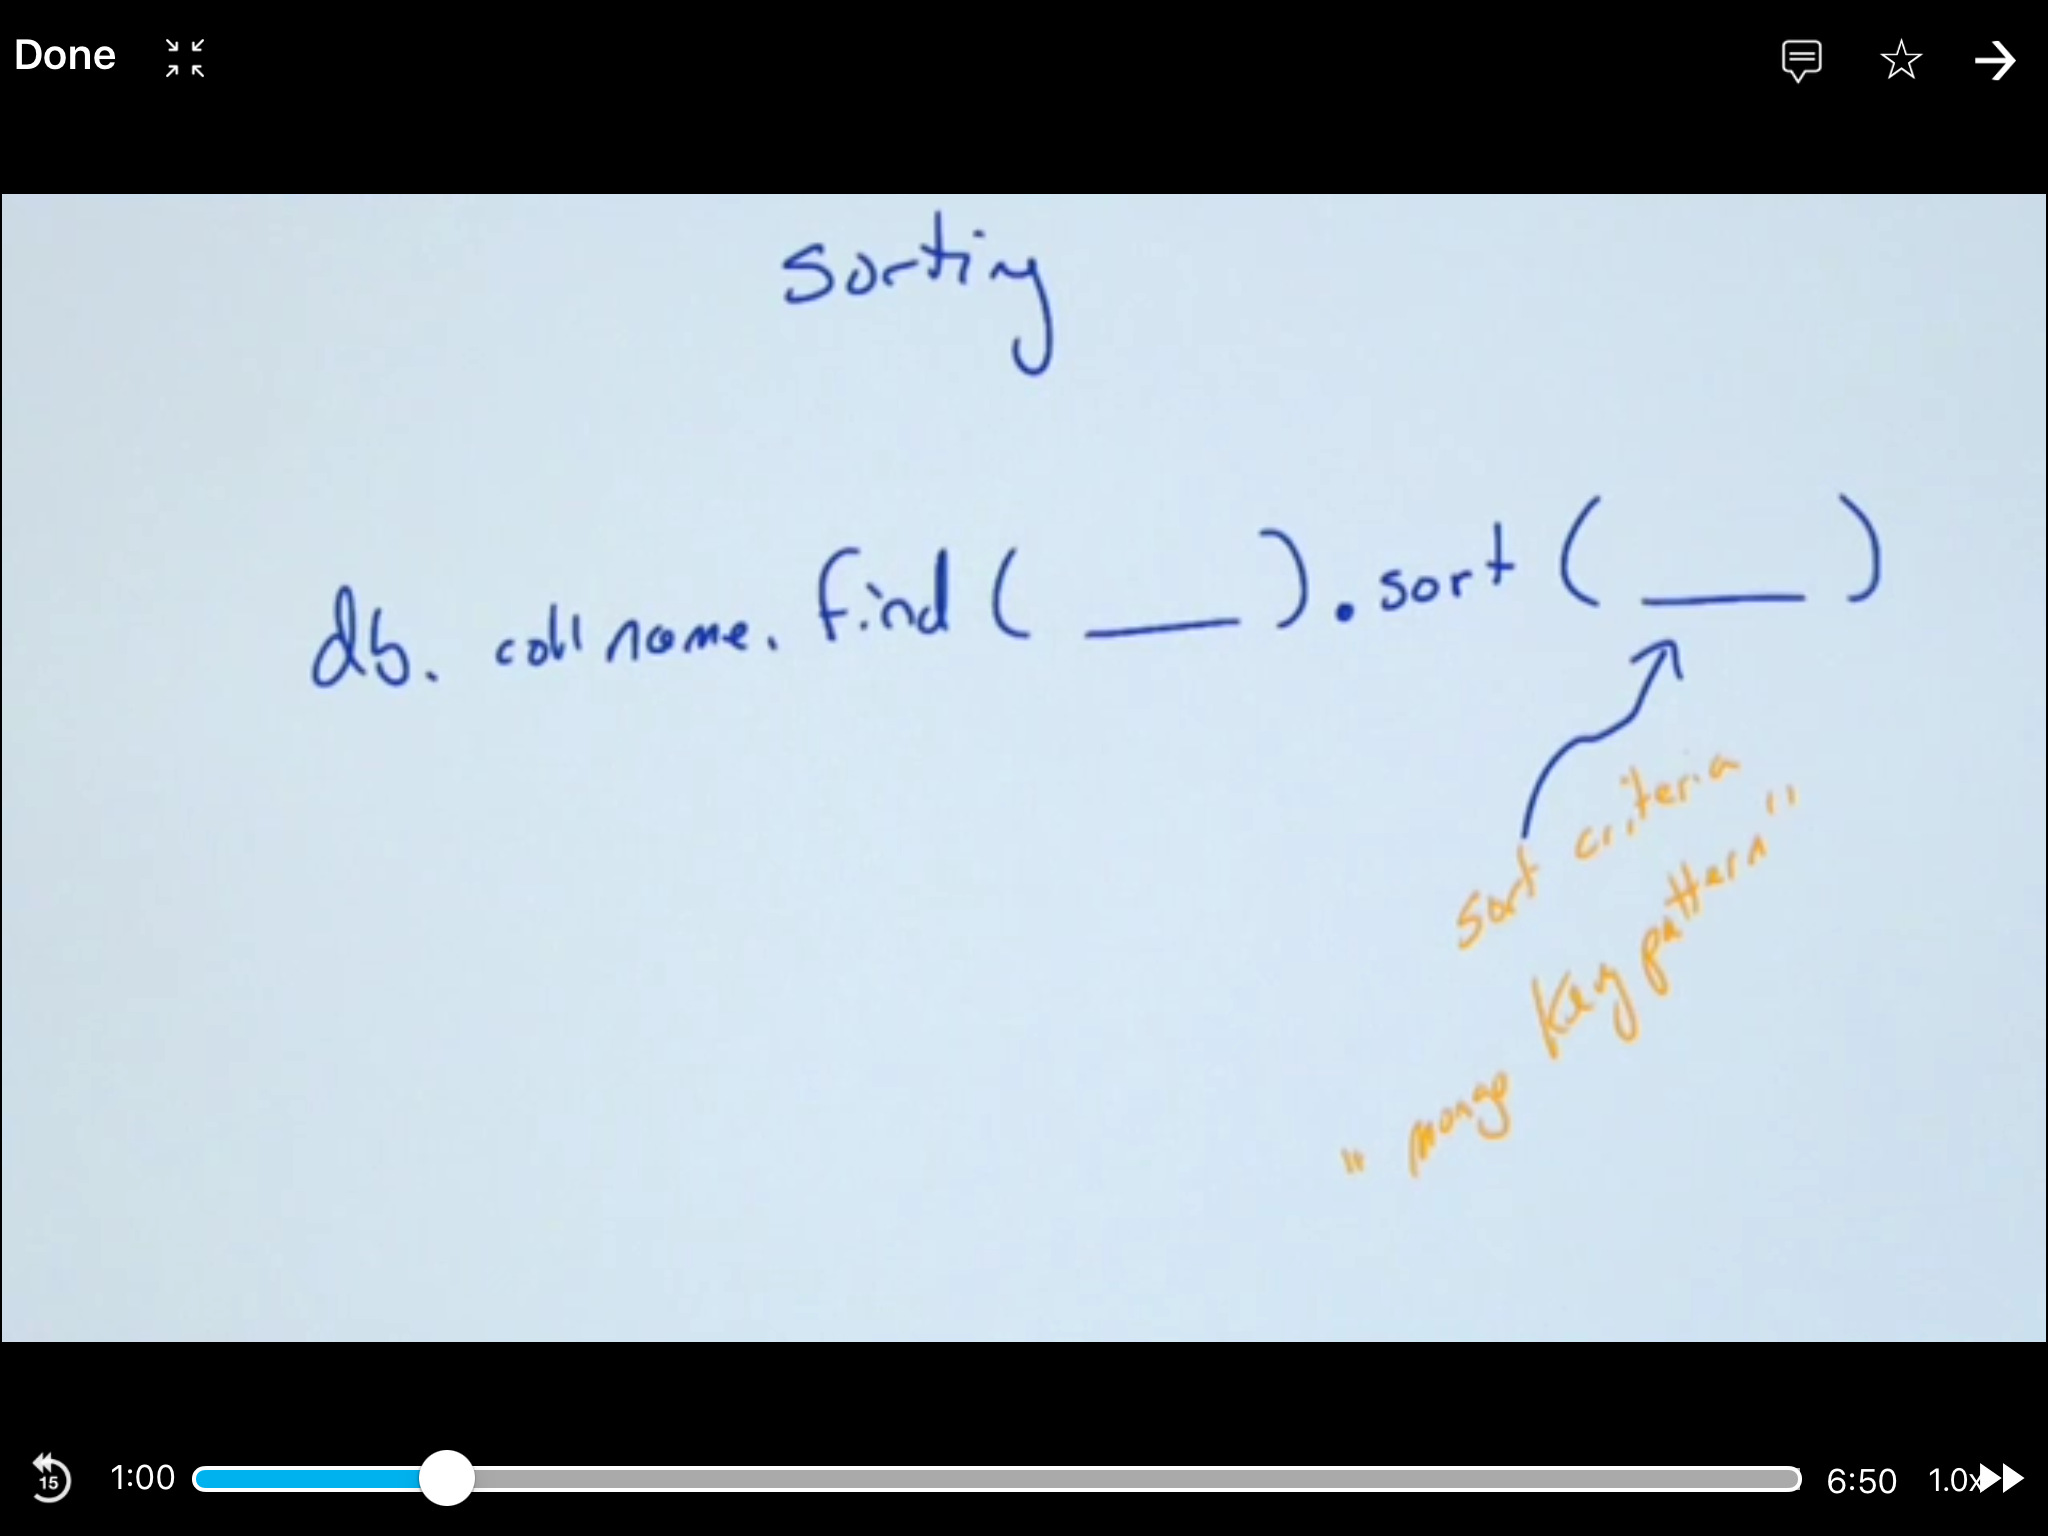 Done
sorting
db. coll name. find ( ___ ) . sort ( ___ )
sort criteria
" mongo key pattern "
15 1:00 6:50 1.0x